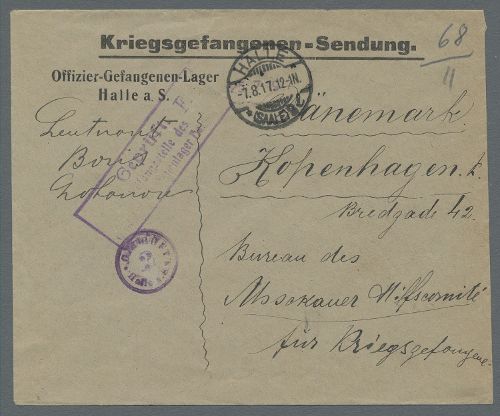 Kriegsgefangenen-Sendung.
68
11
Offizier-Gefangenen-Lager
Halle a. S.
HALLE
-7.8.17.12-1N.
(SAALE)
Geprüft F.
des
Leutnant
Boris
Dänemark
Kopenhagen. k.
Bredgade 42
Bureau des
Moskauer Hilfscomité
für Kriegsgefangene